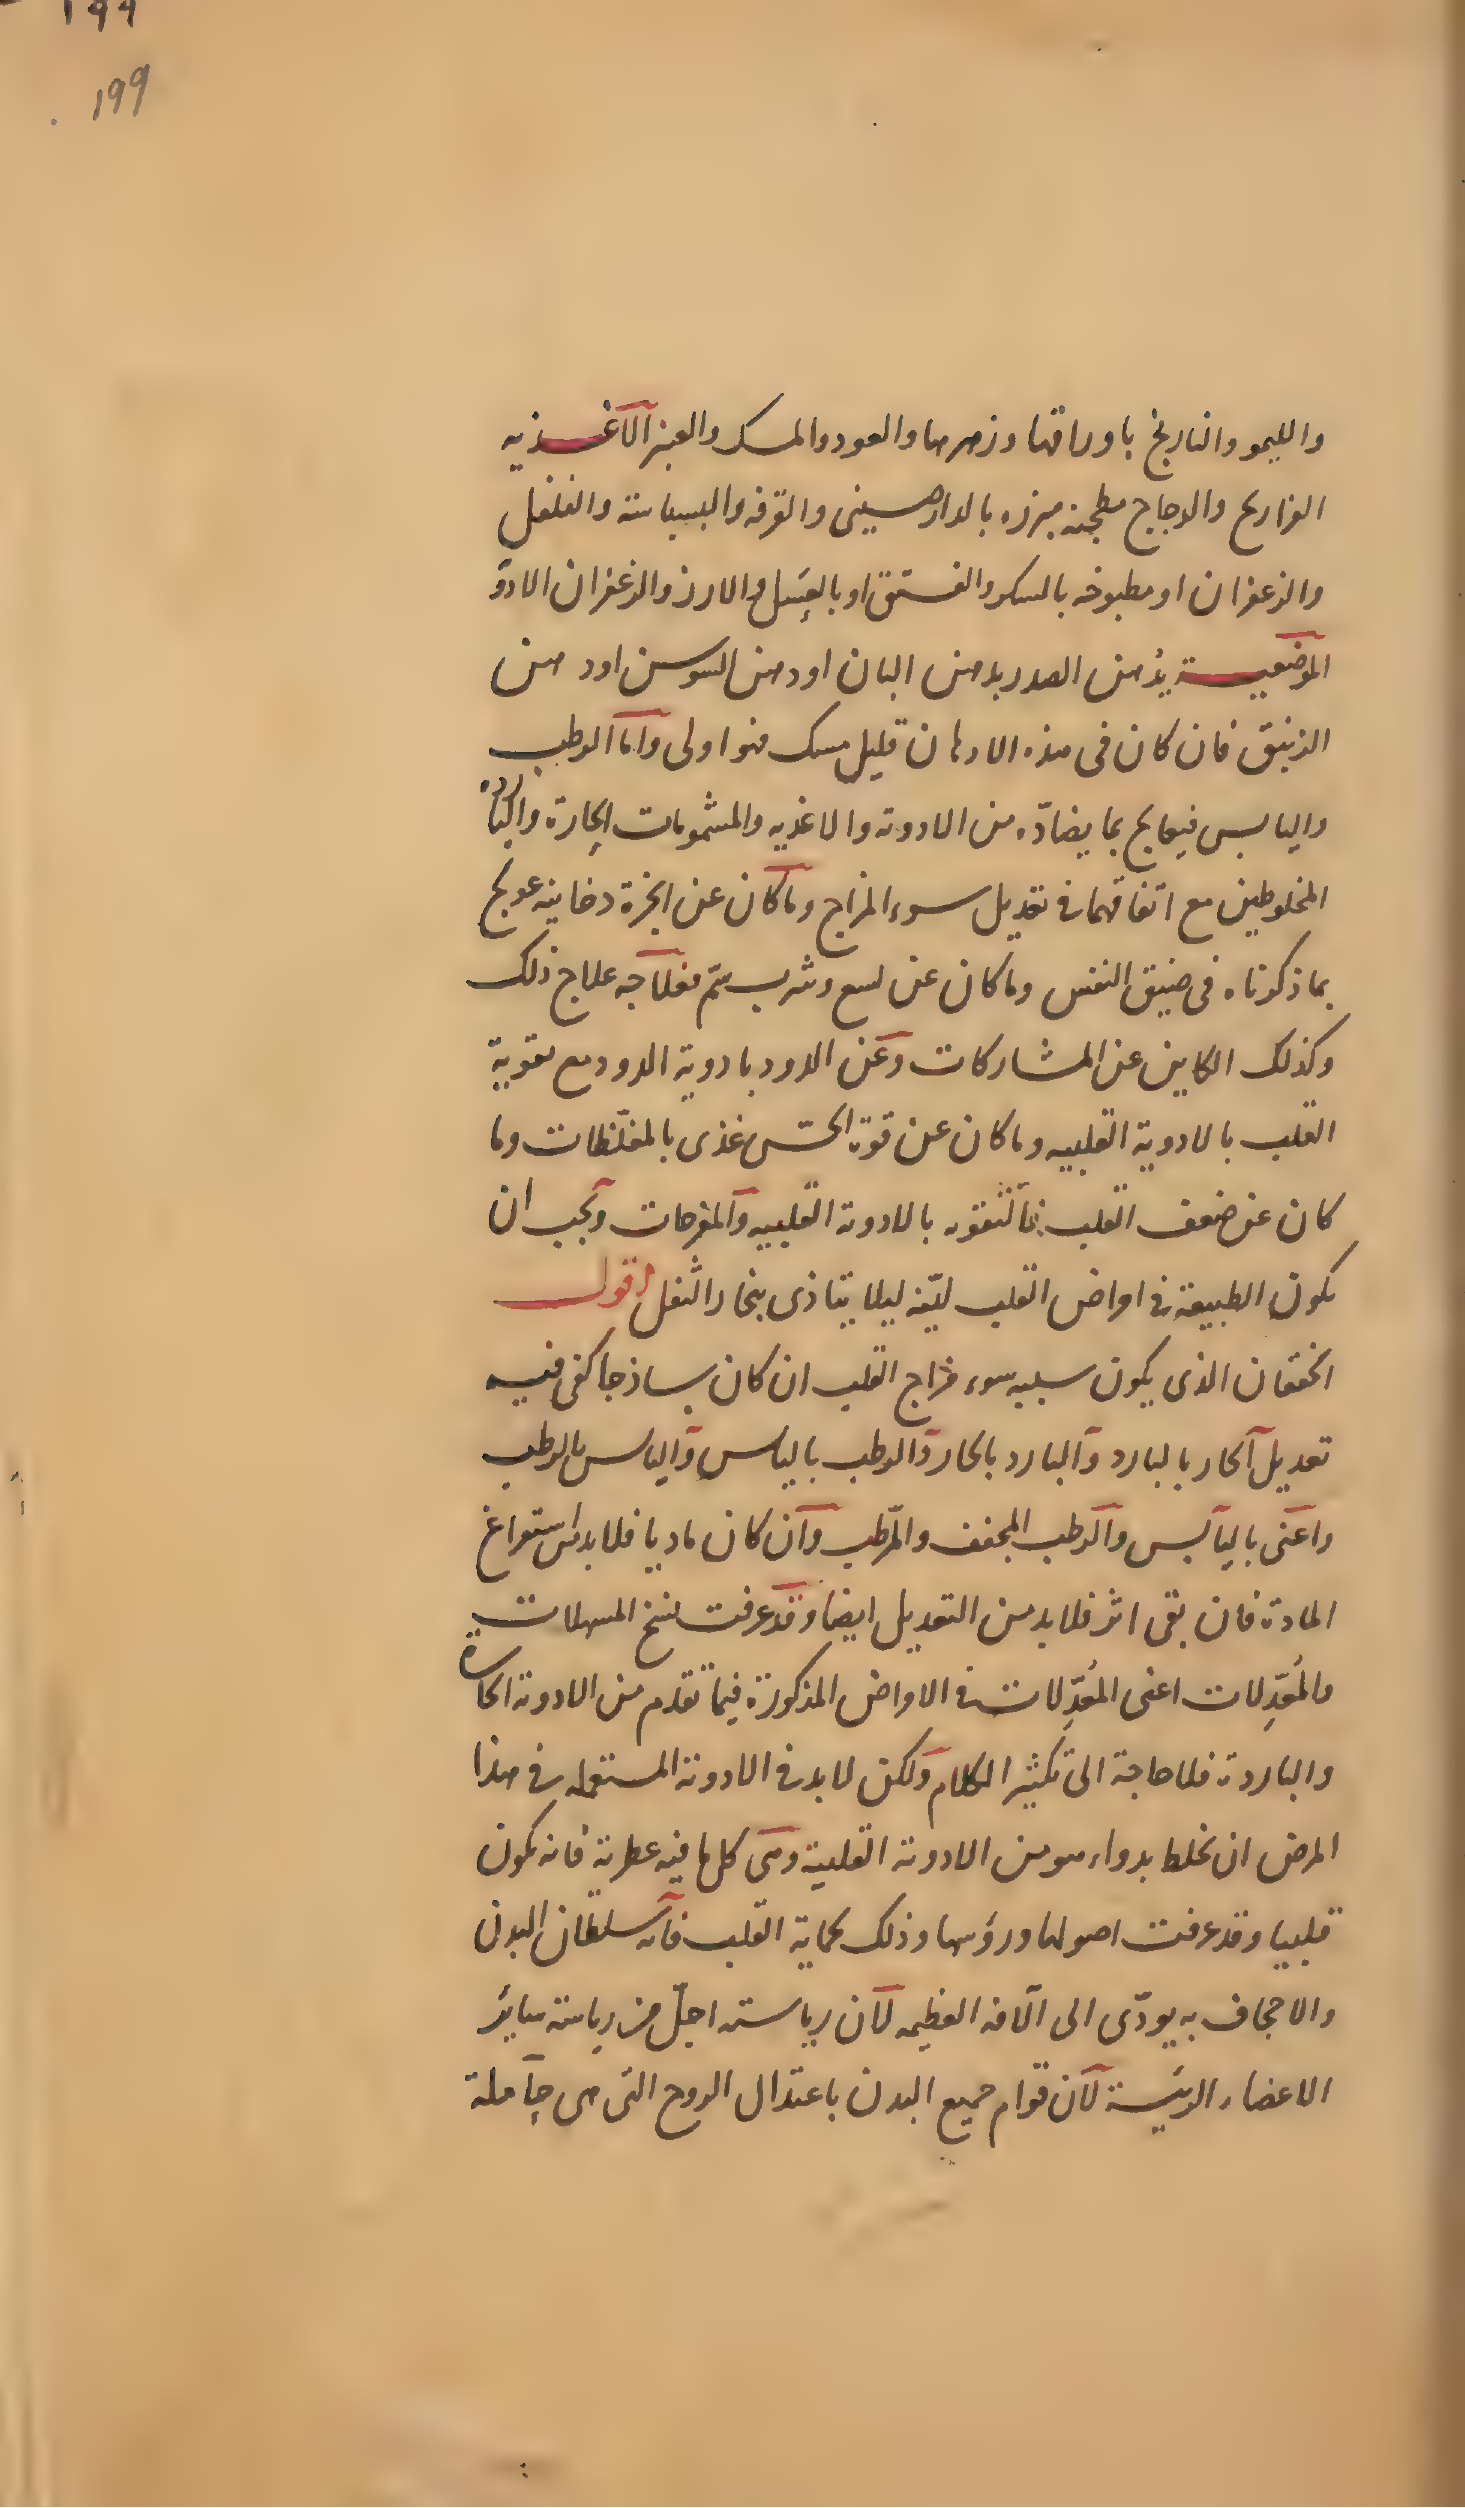 ١٩٩
١٩٩
والليمو والنارنج باوراقها وزهرها والعود والمسك والعنبر الاغذيه
الفراريج والدجاج مطجنه مبزره بالدارصيني والقرفه والبسباسة والفلفل
والزعفران او مطبوخه بالسكر والفستق او بالعسل والارز والزعفران الادوية
الموضعية يدهن الصدر بدهن البان او دهن السوسن او دهن
الزنبق فان كان في هذه الادهان قليل مسك فهو اولى واما الرطب
واليابس فيعالج بما يضاده من الادوية والاغذيه والمشمومات الحارة والباردة
المخلوطين مع اتفاقهما في تعديل سوء المزاج وما كان عن ابخرة دخانية عولج
بما ذكرناه في ضيق النفس وما كان عن لسع وشرب سم فعلاجه علاج ذلك
وكذلك الكاين عن المشاركات وعن الدود بادوية الدود مع تقوية
القلب بالادوية القلبيه وما كان عن قوة الحس غذى بالمغلظات وما
كان عن ضعف القلب بالادوية القلبيه والمفرحات ويجب ان
يكون الطبيعة في امراض القلب لينة ليلا يتاذى ببخار الثفل اقول
الخفقان الذي يكون سببه سوء مزاج القلب ان كان ساذجا كفى فيه
تعديل الحار بالبارد والبارد بالحار والرطب باليابس واليابس بالرطب
واعنى باليابس والرطب المجفف والمرطب وان كان ماديا فلا بد من استفراغ
المادة فان بقى اثر فلا بد من التعديل ايضا وقد عرفت نسخ المسهلات
والمعدلات اعنى المعدلات في الامراض المذكورة فيما تقدم من الادوية الحارة
والباردة فلا حاجة الى تكثير الكلام ولكن لا بد في الادوية المستعمله في هذا
المرض ان يخلط بدواء هو من الادوية القلبية وهى كل ما فيه عطرية فانه يكون
قلبيا وقد عرفت اصولها ورؤسها وذلك لحماية القلب فانه سلطان البدن
والاجحاف به يودى الى الآفه العظيمه لان رياسته اجل من رياسة سائر
الاعضاء الرئيسة لان قوام جميع البدن باعتدال الروح التى هى حاملة